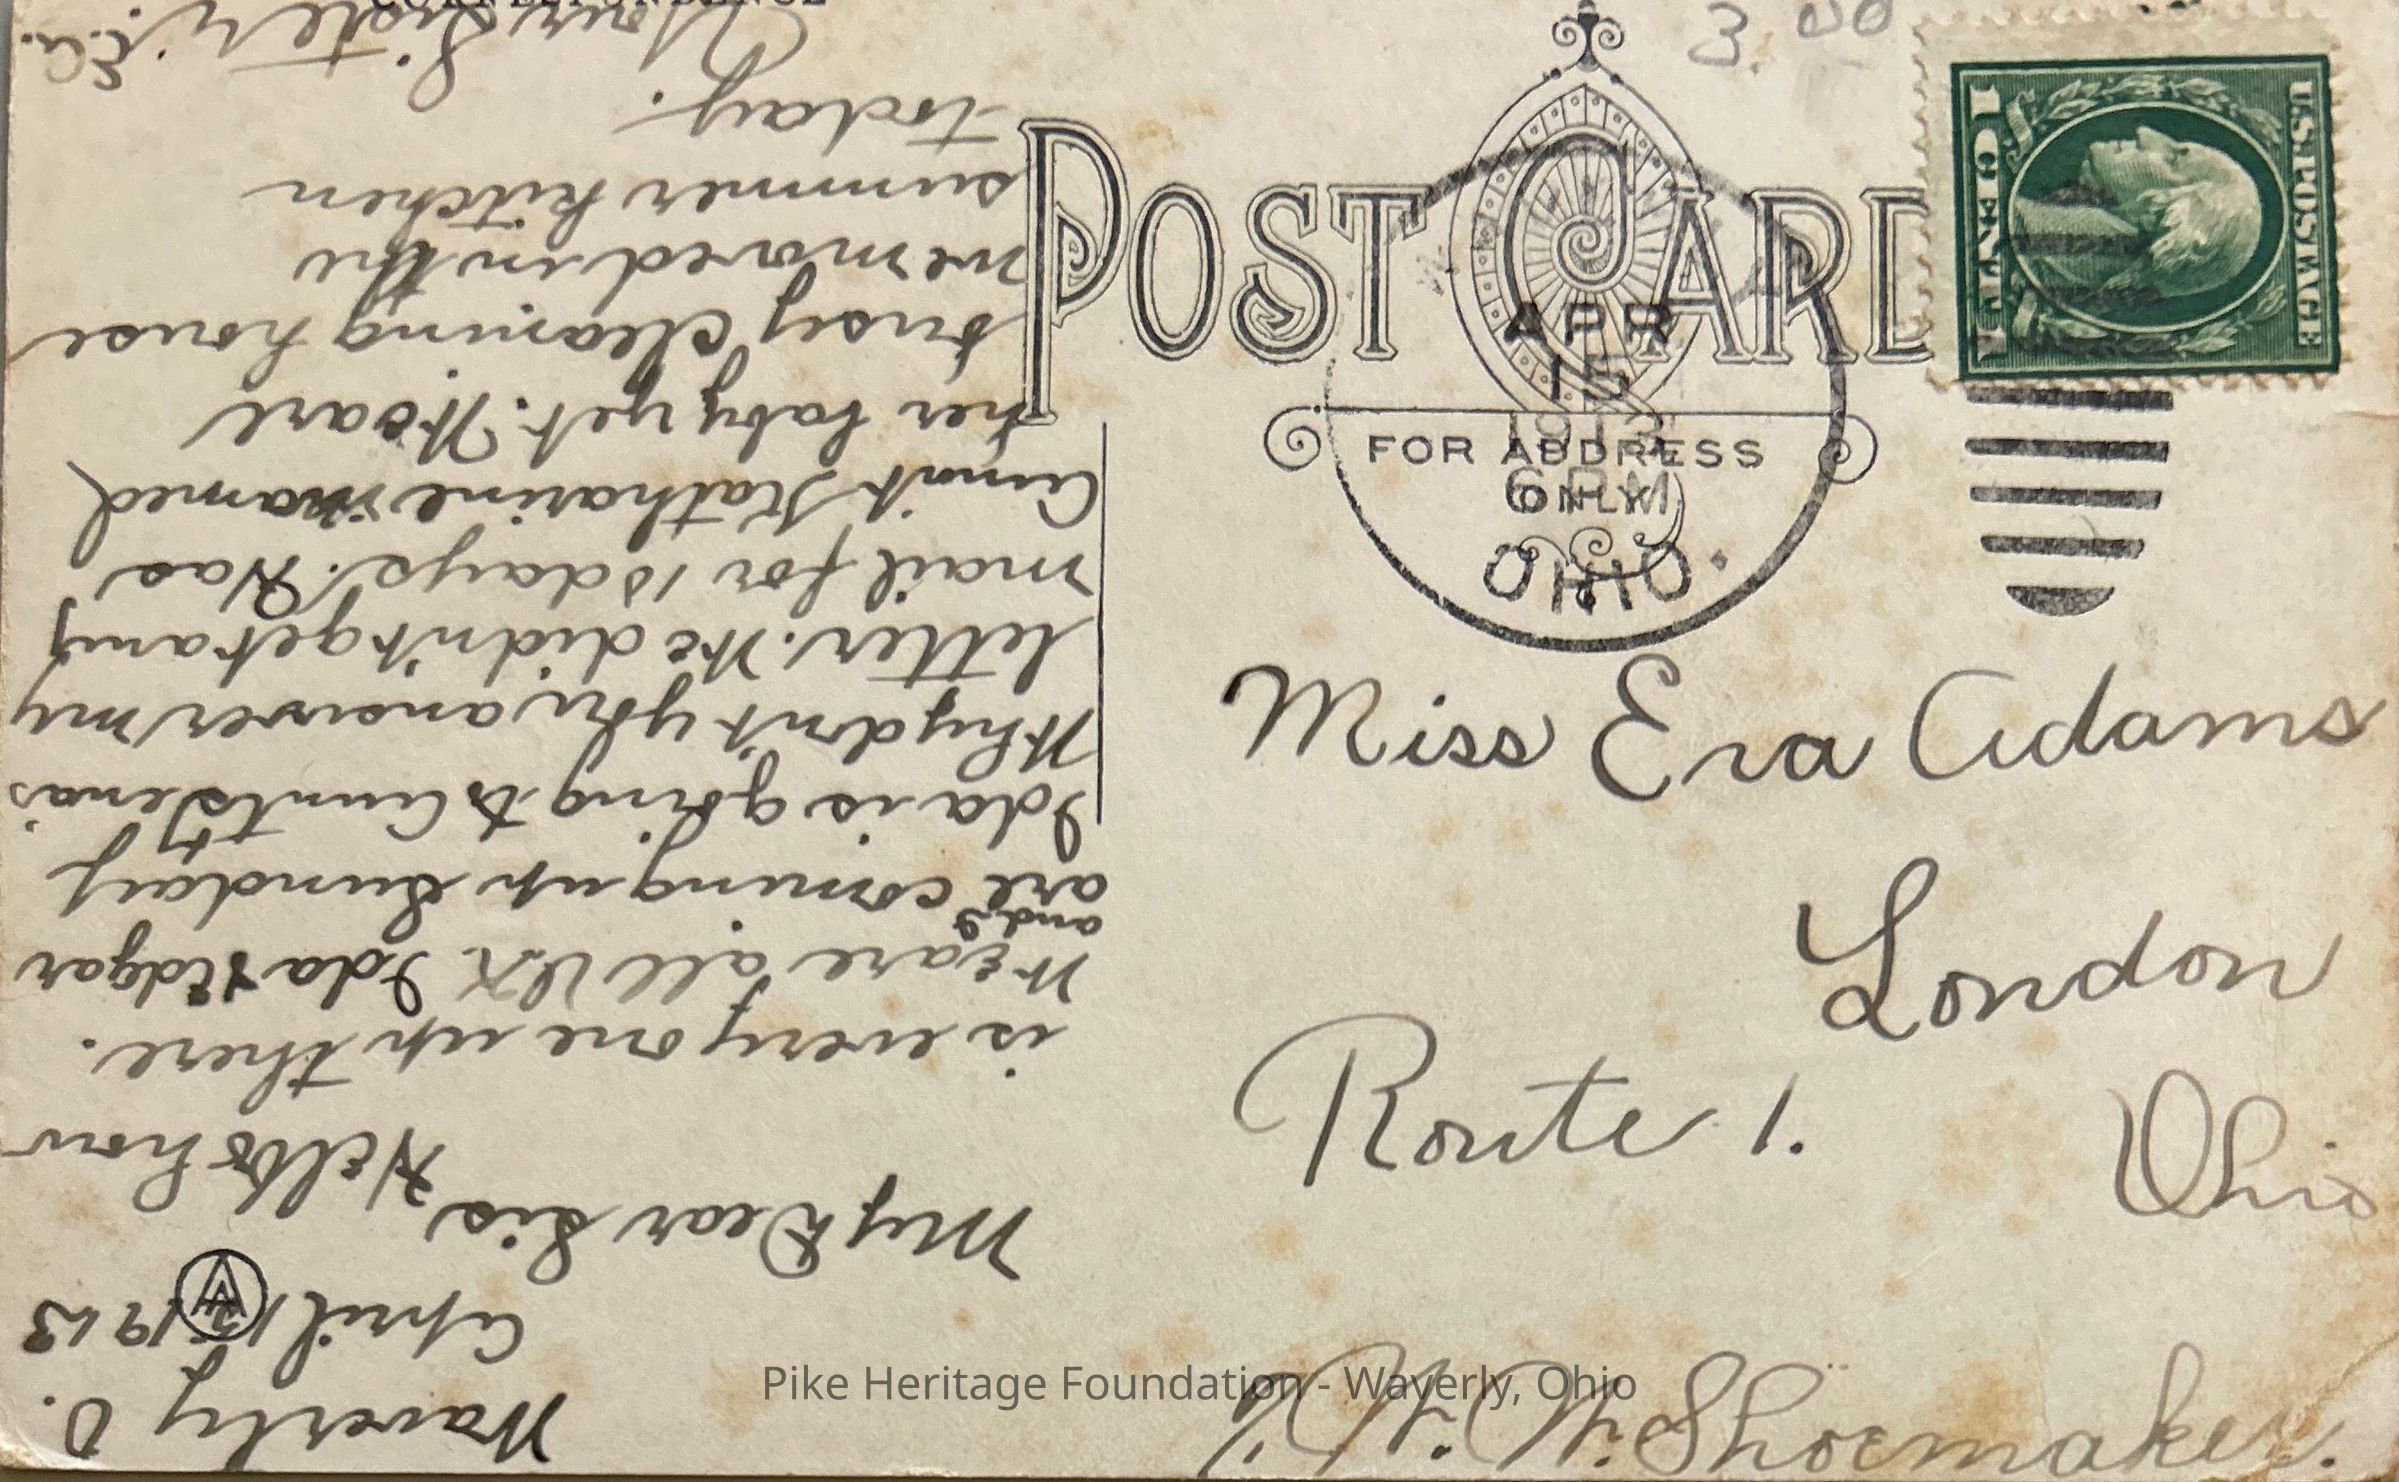 CORRESPONDENCE
Waverly O.
April 15 1913
My Dear Sis,
Hello how
is every one up there.
We are all O.K. Ida & Edgar
and I
are coming up Sunday
Ida is going to Aunt Lena's
Why don't you answer my
letter. We didn't get any
mail for 15 days. Has
Aunt Katharine named
her baby yet. We are
busy cleaning house
we moved in the
summer kitchen
today.
Your Sister, E.A.
3.00
POST CARD
FOR ADDRESS
ONLY
APR
15
1913
6 PM
OHIO.
U.S. POSTAGE
1 CENT 1
Miss Era Adams
London
Route 1.
Ohio
Shoemaker.
Pike Heritage Foundation - Waverly, Ohio